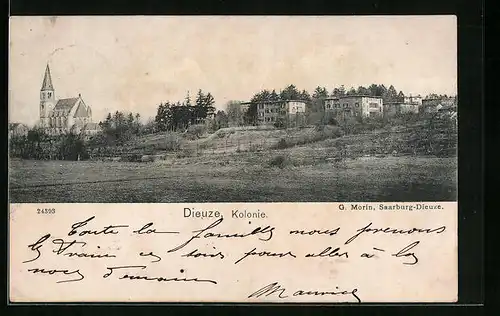 24393
Dieuze, Kolonie.
G. Morin, Saarburg-Dieuze.
Toute la famille nous prenons
le train ce soir pour aller à la
noce demain
Maurice